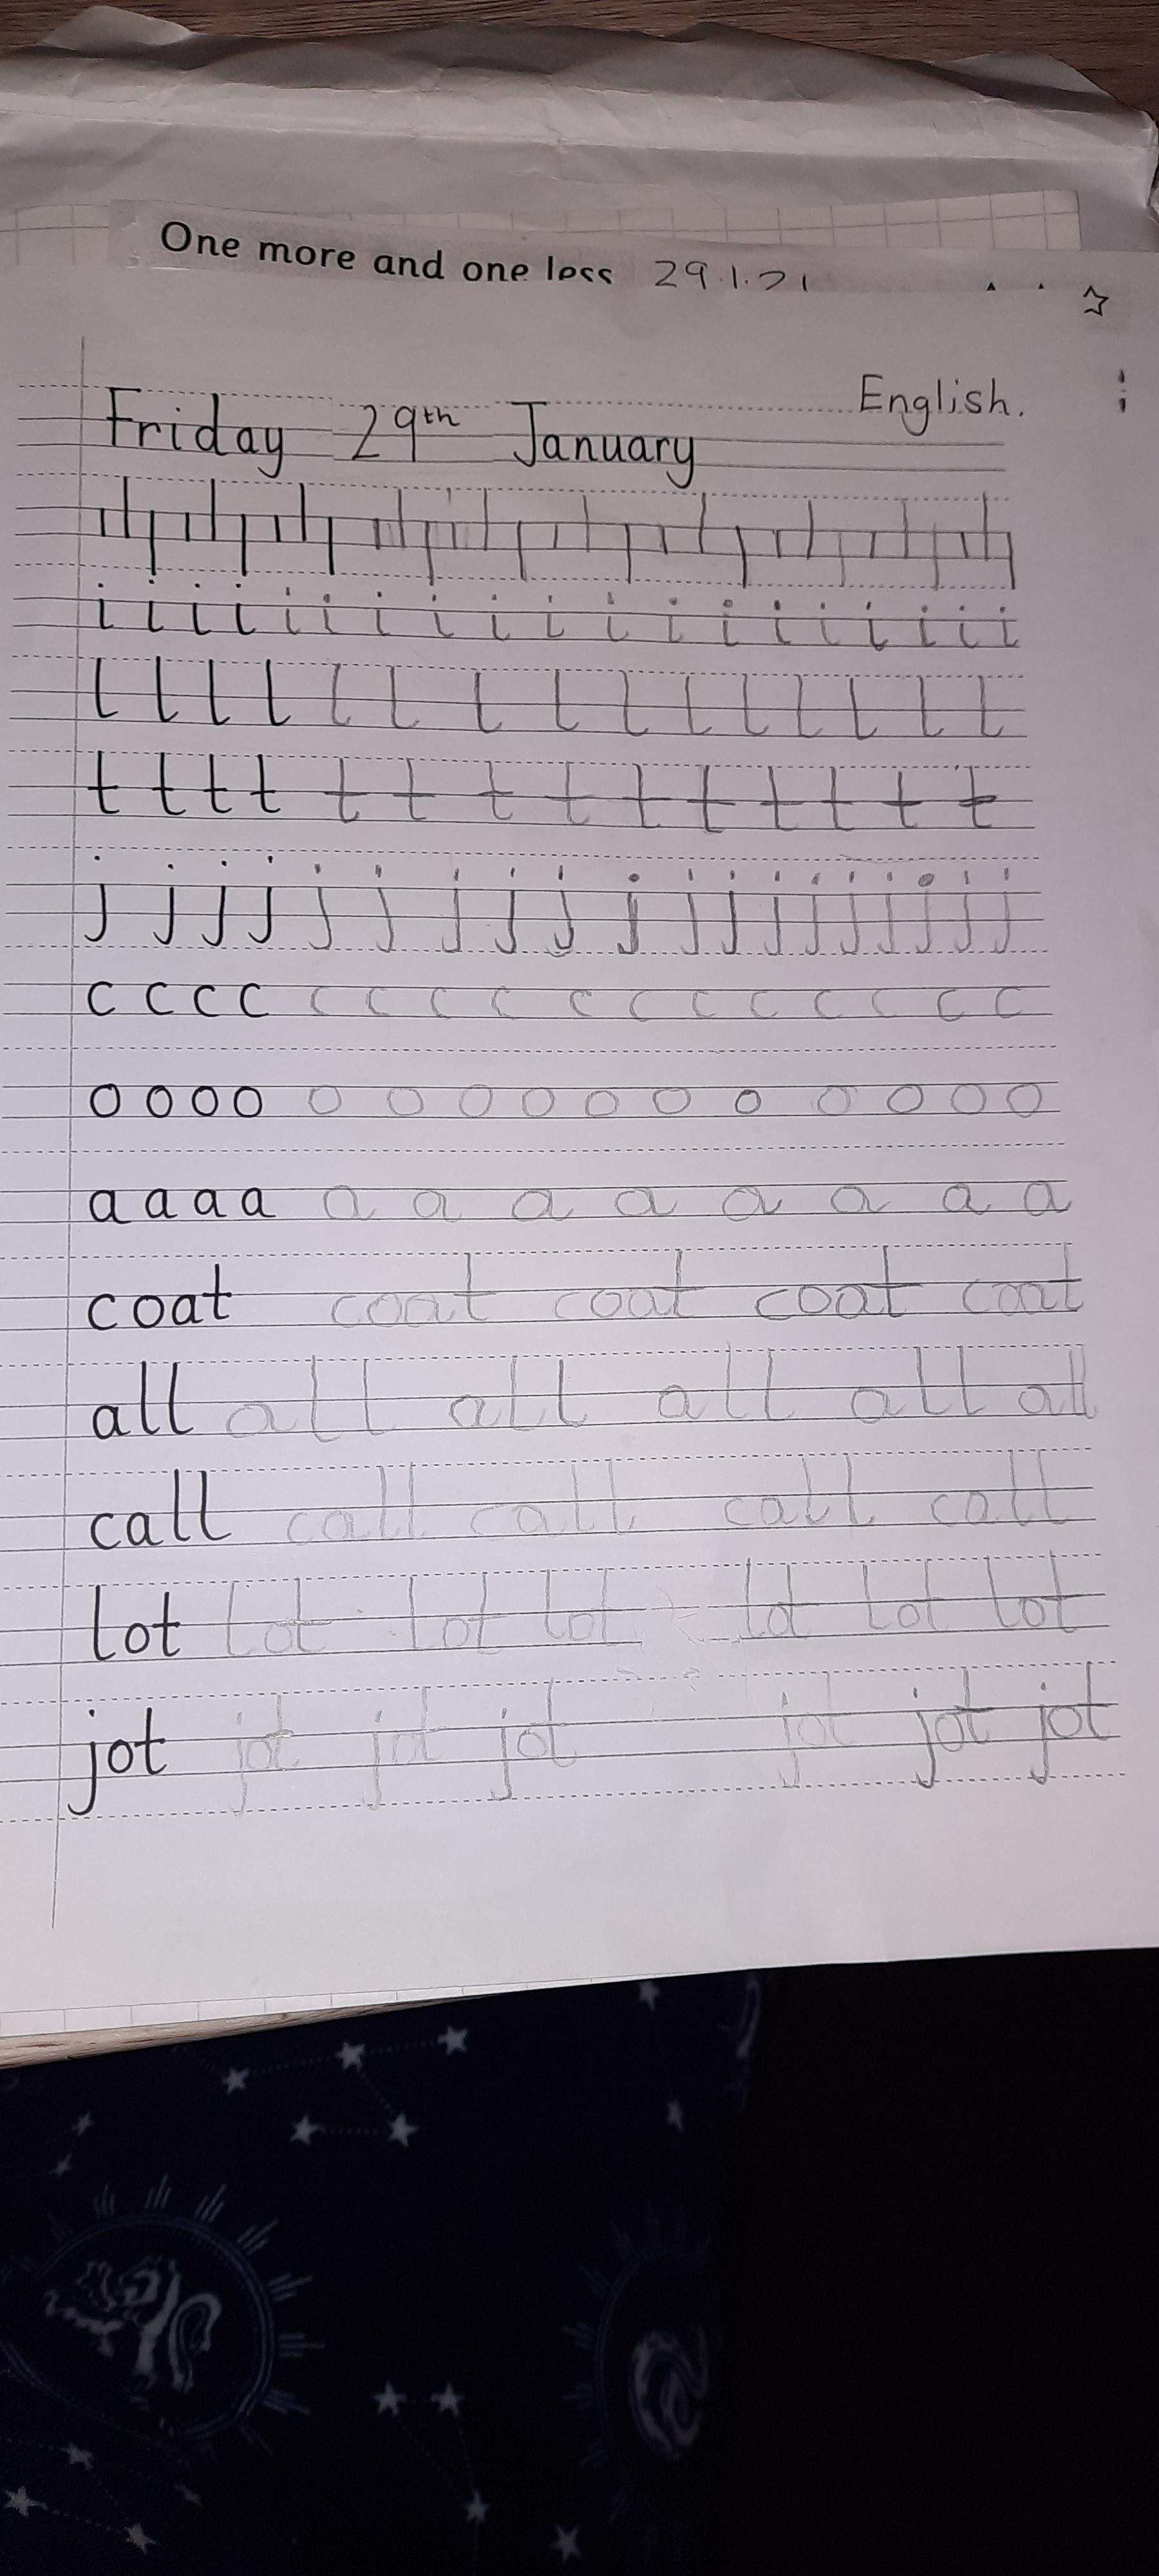 One more and one less 29.1.21
English.
Friday 29th January
i i i i i i i i i i i i i i i i i i i
l l l l l l l l l l l l l l l
t t t t t t t t t t t t t t
j j j j j j j j j j j j j j j j j j j
c c c c c c c c c c c c c c c
o o o o o o o o o o o o o o o
a a a a a a a a a a a a
coat coat coat coat coat
all all all all all all
call call call call call
lot lot lot lot lot lot lot
jot jot jot jot jot jot jot